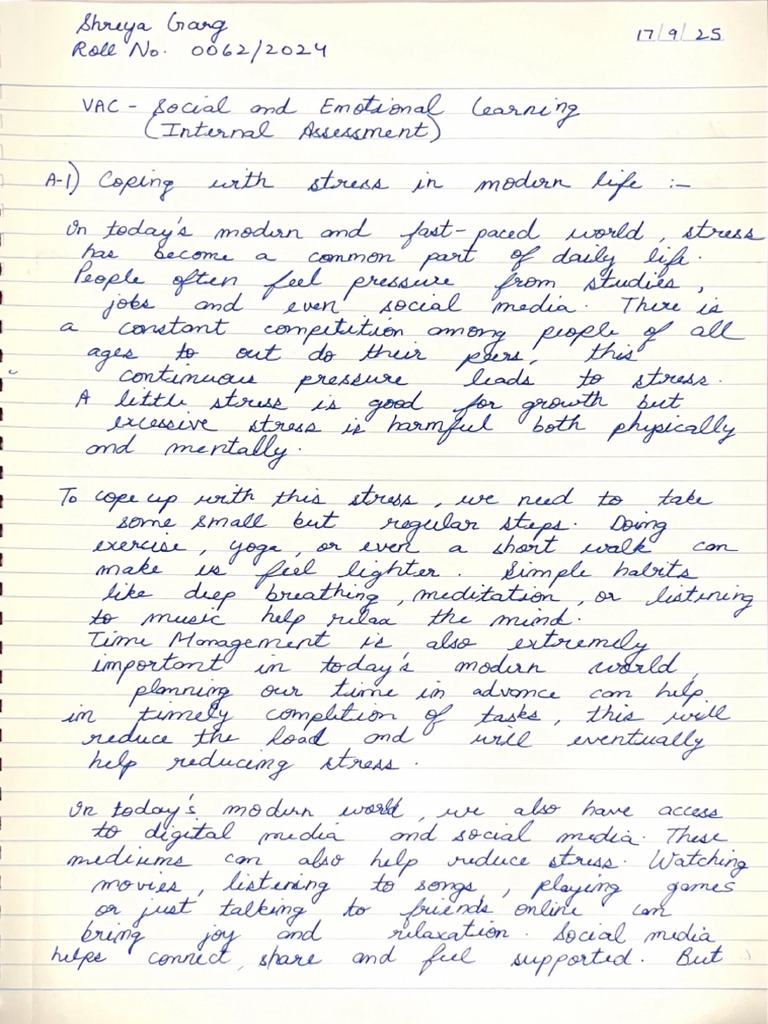 Shreya Garg
Roll No. 0062/2024
17/9/25
VAC - Social and Emotional Learning
(Internal Assessment)
A-1) Coping with stress in modern life :-
In today's modern and fast-paced world, stress
has become a common part of daily life.
People often feel pressure from studies,
jobs and even social media. There is
a constant competition among people of all
ages to out do their peers, this
continuous pressure leads to stress.
A little stress is good for growth but
excessive stress is harmful both physically
and mentally.
To cope up with this stress, we need to take
some small but regular steps. Doing
exercise, yoga, or even a short walk can
make us feel lighter. Simple habits
like deep breathing, meditation, or listening
to music help relax the mind.
Time Management is also extremely
important in today's modern world,
planning our time in advance can help
in timely completion of tasks, this will
reduce the load and will eventually
help reducing stress.
In today's modern world, we also have access
to digital media and social media. These
mediums can also help reduce stress. Watching
movies, listening to songs, playing games
or just talking to friends online can
bring joy and relaxation. Social media
helps connect, share and feel supported. But